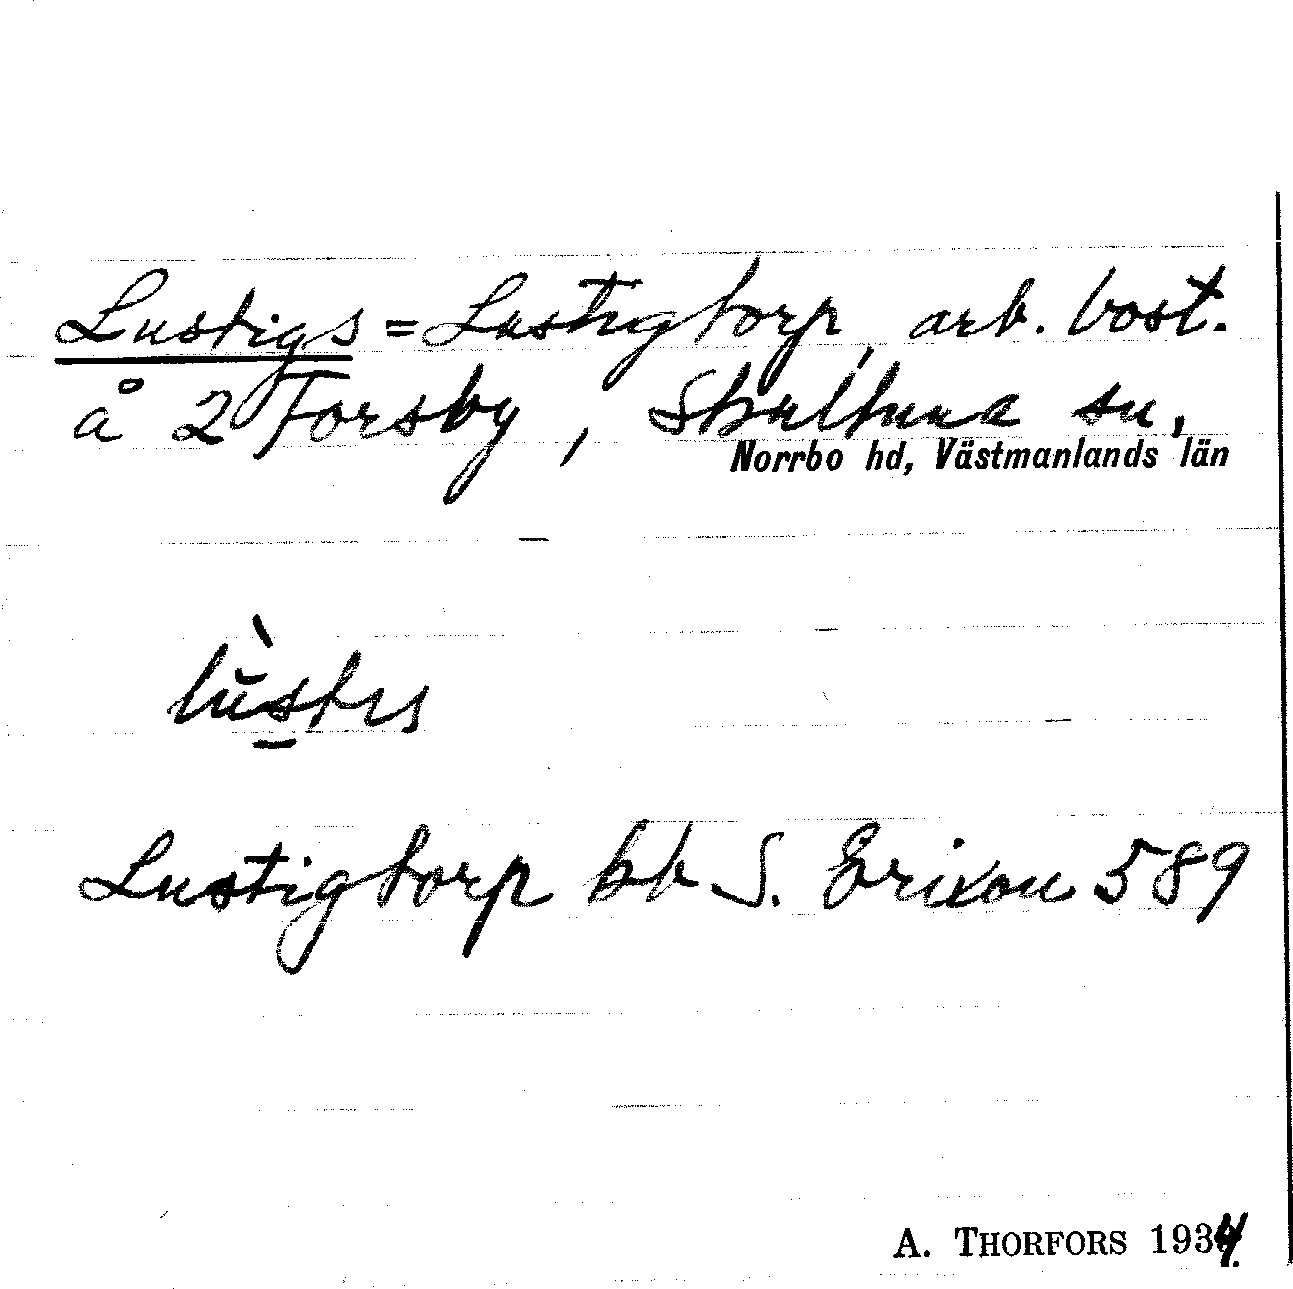 Lustigs = Lustigtorp, arb. bost.
å 2 Forsby, Skultuna sn,
Norrbo hd, Västmanlands län
lùstıs
Lustigtorp kb S. Erixon 589
A. THORFORS 1934.